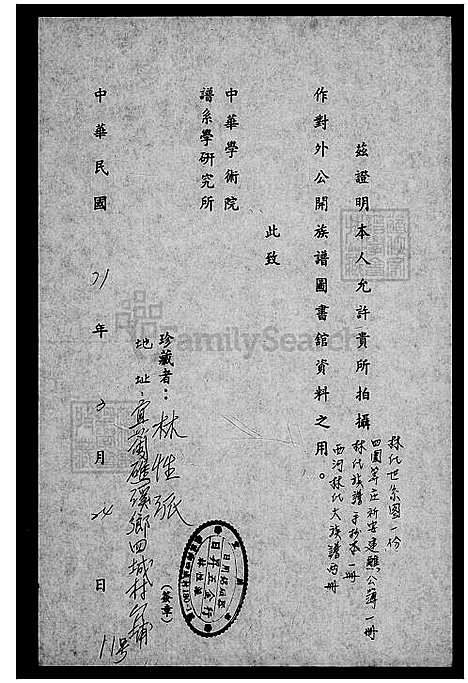 茲證明本人允許貴所拍攝
林氏世系圖一份
四圍等庄祈安建醮公簿一冊
林氏族譜手抄本一冊
西河林氏大族譜兩冊
作對外公開族譜圖書館資料之用。
此致
中華學術院
譜系學研究所
珍藏者：林性派
地址：宜蘭礁溪鄉四城村
11号
（簽章）
中華民國71年 月 日
FamilySearch